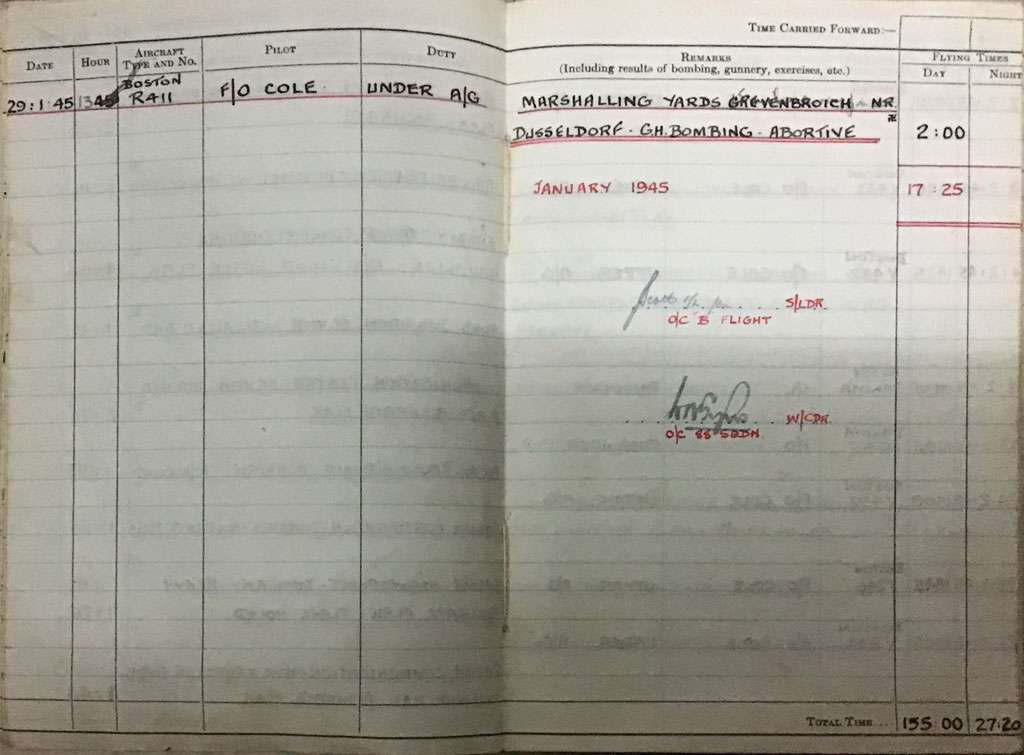 TIME CARRIED FORWARD:—
DATE HOUR AIRCRAFT TYPE AND NO. PILOT DUTY REMARKS (Including results of bombing, gunnery, exercises, etc.) FLYING TIMES
DAY NIGHT
29:1:45 1345 BOSTON R411 F/O COLE UNDER A/G MARSHALLING YARDS GREVENBROICH NR.
DUSSELDORF · G.H. BOMBING · ABORTIVE 卐 2:00
JANUARY 1945 17 25
S/LDR.
O/C B FLIGHT
W/CDR.
O/C 88 SQDN.
TOTAL TIME... 155 00 27:20